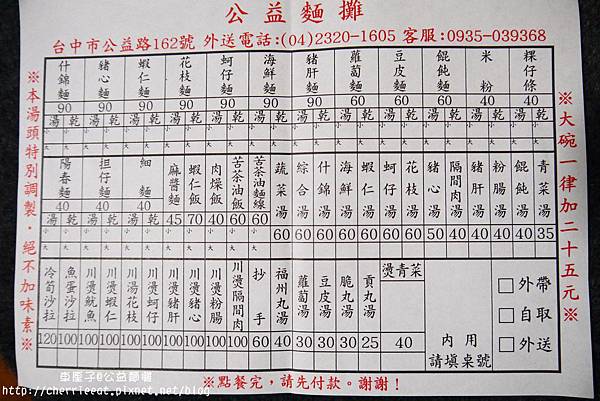 公益麵攤
台中市公益路162號 外送電話:(04)2320-1605 客服:0935-039368
※本湯頭特別調製，絕不加味素※
什錦麵 豬心麵 蝦仁麵 花枝麵 蚵仔麵 海鮮麵 豬肝麵 蘿蔔麵 豆皮麵 餛飩麵 米粉 粿仔條
90 90 90 90 90 90 90 60 60 60 40 40
湯 乾 湯 乾 湯 乾 湯 乾 湯 乾 湯 乾 湯 乾 湯 乾 湯 乾 湯 乾 湯 乾 湯 乾
小 小 小 小 小 小 小 小 小 小 小 小 小 小 小 小 小 小 小 小 小 小 小 小
大 大 大 大 大 大 大 大 大 大 大 大 大 大 大 大 大 大 大 大 大 大 大 大
陽春麵 担仔麵 細麵 麻醬麵 蝦仁飯 肉燥飯 苦茶油飯 苦茶油麵線 蔬菜湯 綜合湯 什錦湯 海鮮湯 蝦仁湯 蚵仔湯 花枝湯 豬心湯 隔間肉湯 豬肝湯 粉腸湯 餛飩湯 青菜湯
40 40 40 45 70 40 60 60 60 60 60 60 60 60 60 50 40 40 40 40 35
湯 乾 湯 乾 湯 乾
小 小 小 小 小 小
大 大 大 大 大 大
冷筍沙拉 魚蛋沙拉 川燙魷魚 川燙蝦仁 川湯花枝 川燙蚵仔 川燙豬肝 川燙豬心 川燙粉腸 川燙隔間肉 抄手 福州丸湯 蘿蔔湯 豆皮湯 脆丸湯 貢丸湯 燙青菜
120 100 100 100 100 100 100 100 100 100 60 40 30 30 30 25 40
內用
請填桌號
□外帶
□自取
□外送
※大碗一律加二十五元※
※點餐完，請先付款。謝謝！
http://cherrieeat.pixnet.net/blog